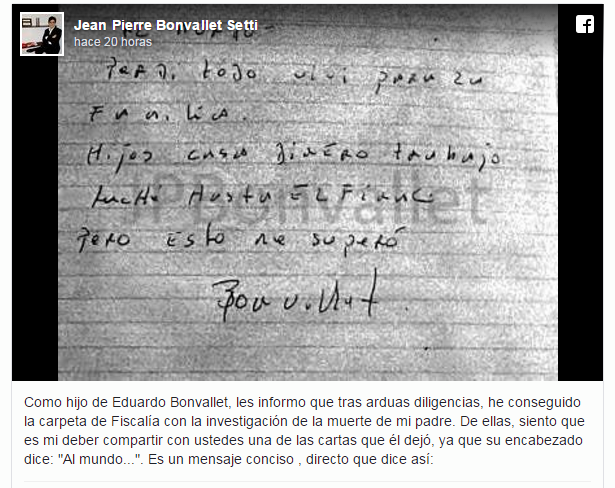 Jean Pierre Bonvallet Setti
hace 20 horas
Perdi todo vivi para la
Familia.
Hijos casa Dinero trabajo
Luché Hasta EL Final
Pero esto me superó
Bonvallet
JPBonvallet
Como hijo de Eduardo Bonvallet, les informo que tras arduas diligencias, he conseguido
la carpeta de Fiscalía con la investigación de la muerte de mi padre. De ellas, siento que
es mi deber compartir con ustedes una de las cartas que él dejó, ya que su encabezado
dice: "Al mundo...". Es un mensaje conciso , directo que dice así: